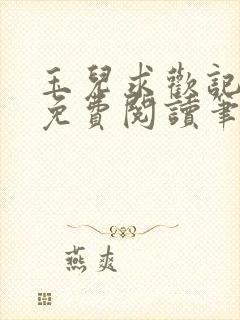 玉兒求歡記
免費閱讀筆
燕爽